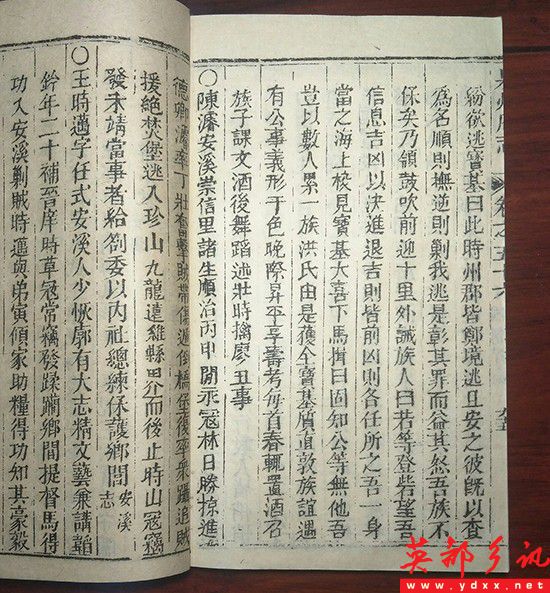 紛欲逃寶基曰此時州郡皆鄭境逃且安之彼旣以査
為名順則撫逆則剿我逃是彰其罪而益其怒吾族不
保矣乃領鼓吹前迎十里外誡族人曰若等登砦望吾
信息吉凶以決進退吉則皆前凶則各任所之吾一身
當之海上梭見寶基大喜下馬揖曰固知公等無他吾
豈以數人累一族洪氏由是獲全寶基質直敦族誼遇
有公事義形于色晚際昇平享壽考每首春輒置酒召
族子課文酒後舞蹈述壯時擒廖丑事
〇陳濬安溪崇信里諸生順治丙甲閒永冦林日勝掠進
德卿濬率丁壯奮擊賊帶傷過後橋堡復卒衆躡追賊
援絶焚堡逃入珍山九龍遠雉縣界而後止時山冦竊
發未靖當事者給劄委以丙社總練保護鄉閭安溪志
〇王時邁字任式安溪人少恢廓有大志精文藝兼講韜
鈐年二十補晉庠時草冦常竊發蹂躪鄉閭提督馬得
功入安溪剿賊時邁與弟寅傾家助糧得功知其豪毅
英都乡讯
www.ydxx.net